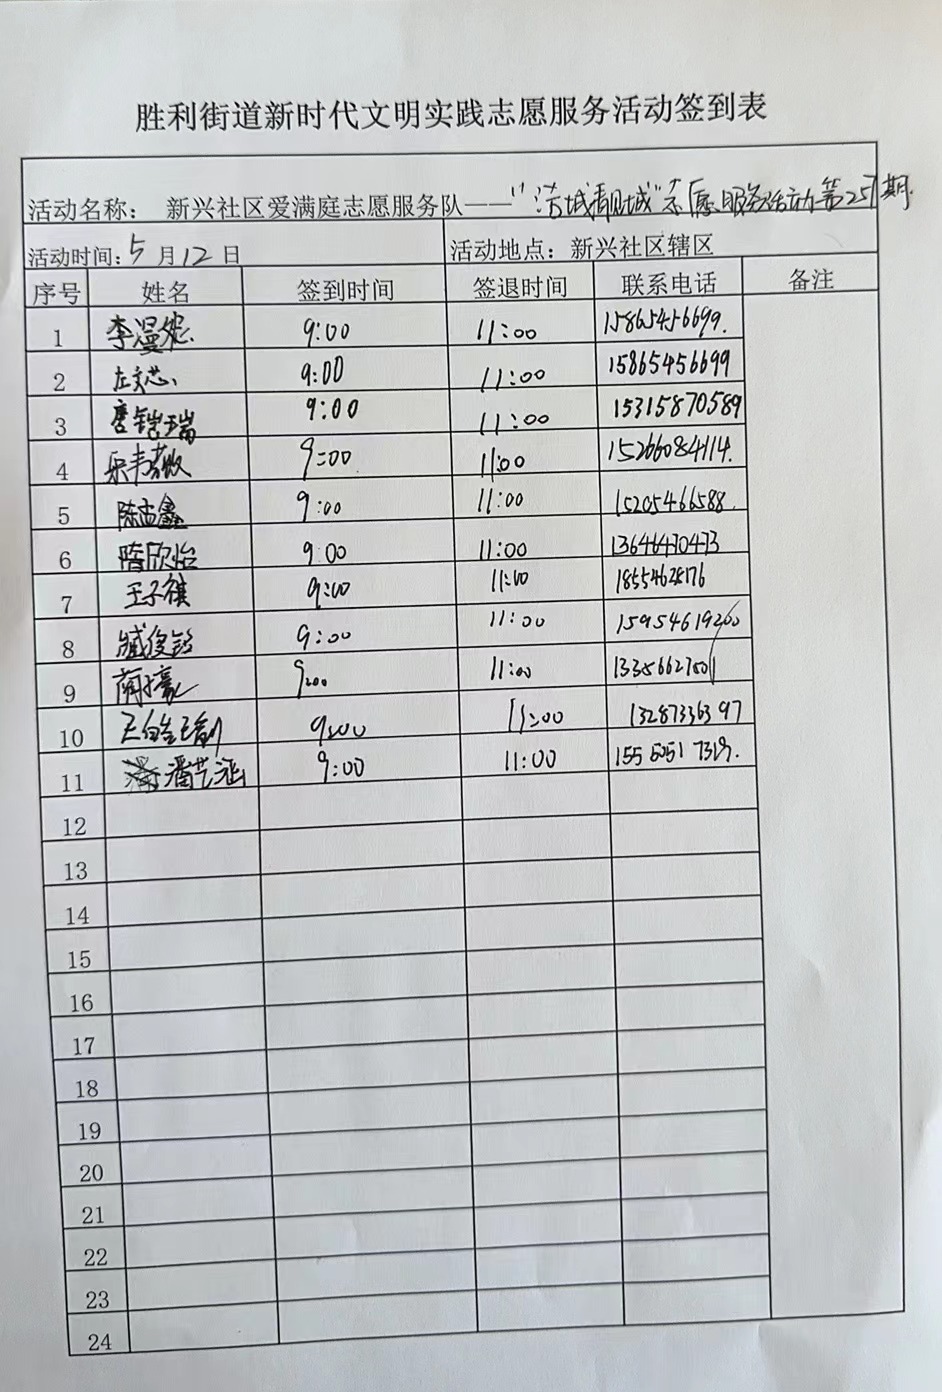 胜利街道新时代文明实践志愿服务活动签到表
活动名称： 新兴社区爱满庭志愿服务队——“洁城靓城”志愿服务活动第257期
活动时间：5月12日 活动地点：新兴社区辖区
序号 姓名 签到时间 签退时间 联系电话 备注
1 李漫妮 9:00 11:00 15865456699.
2 左文芯 9:00 11:00 15865456699
3 唐铠瑞 9:00 11:00 15315870589
4 9:00 11:00 15266084114.
5 陈孟鑫 9:00 11:00 15205466588.
6 隋欣怡 9:00 11:00 13646470473
7 王子祺 9:00 11:00
8 臧俊铭 9:00 11:00 15954619260
9 9:00 11:00
10 9:00 11:00 13287336397
11 潘艺涵 9:00 11:00
12
13
14
15
16
17
18
19
20
21
22
23
24